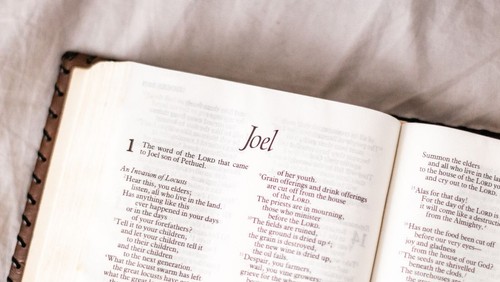 Joel
1 The word of the LORD that came
to Joel son of Pethuel.
An Invasion of Locusts
Hear this, you elders;
listen, all who live in the land.
Has anything like this
ever happened in your days
or in the days
of your forefathers?
Tell it to your children,
and let your children tell it
to their children,
and their children
to the next generation.
What the locust swarm has left
the great locusts have
of her youth.
Grain offerings and drink offerings
are cut off from the house
of the LORD.
The priests are in mourning,
those who minister
before the LORD.
The fields are ruined,
the ground is dried up;
the grain is destroyed,
the new wine is dried up,
the oil fails.
Despair, you farmers,
wail, you vine growers;
grieve for the
Summon the elders
and all who live in the land
to the house of the LORD
and cry out to the LORD.
Alas for that day!
For the day of the LORD is
it will come like destruction
from the Almighty.
Has not the food been cut off
before our very eyes—
joy and gladness
from the house of our God?
The seeds are shriveled
beneath the clods.
the storehouses